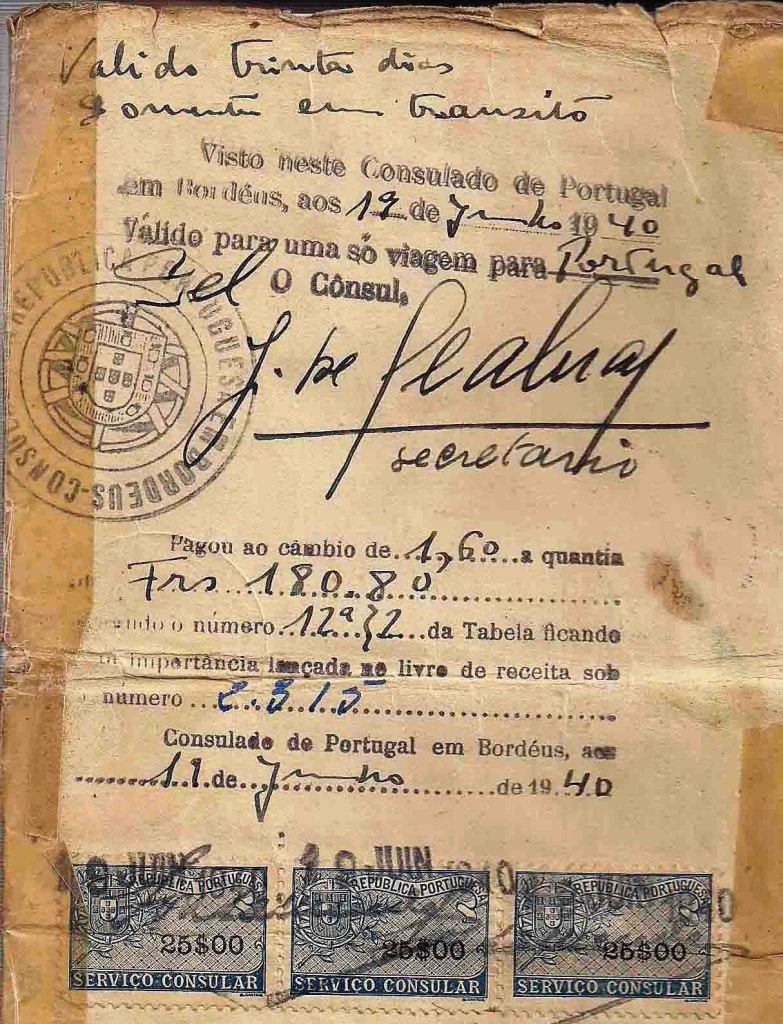 Valido trinta dias
somente em transito
Visto neste Consulado de Portugal
em Bordéus, aos 19 de Junho 1940
Válido para uma só viagem para Portugal
O Cônsul,
secretario
REPUBLICA PORTUGUESA EM BORDEUS-CONSU
Pagou ao câmbio de 1,60 a quantia
Frs 180.80
o número 12º da Tabela ficando
importância lançada no livro de receita sob
número 2.315
Consulado de Portugal em Bordéus, aos
19 de Junho de 1940
JUIN
19 JUIN 1940
REPUBLICA PORTUGUESA REPUBLICA PORTUGUESA REPUBLICA PORTUGUESA
25$00 25$00 25$00
SERVIÇO CONSULAR SERVIÇO CONSULAR SERVIÇO CONSULAR